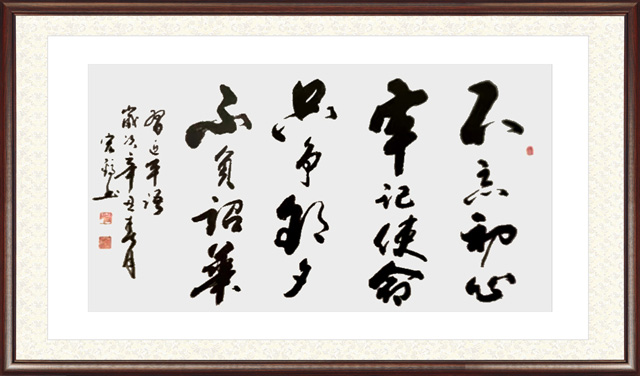 不忘初心
牢记使命
只争朝夕
不负韶华
習近平語
歲次辛丑春月
书